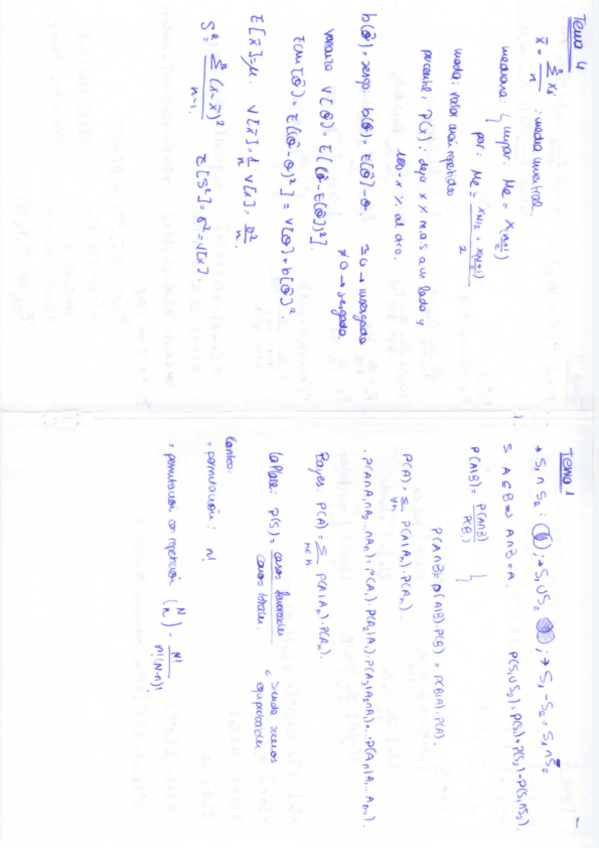 Tema 4
x̄ = Σⁿ xᵢ / n : media muestral.
mediana: { impar: Me = X(n+1/2)
par: Me = (X n/2 + X(n/2+1)) / 2
moda: valor más repetido
percentil: P(x): deja x % a un lado y
100-x % al otro.
b(θ̂) = sesgo: b(θ̂) = E[θ̂]-θ. = 0 → insesgado
≠ 0 → sesgado.
Varianza V[θ̂] = E[(θ̂-E[θ̂])²].
ECM[θ̂] = E[(θ̂-θ)²] = V[θ̂] + b[θ̂]².
E[x̄] = μ. V[x̄] = 1/n V[x] = σ²/n.
S² = Σⁿ (x-x̄)² / n-1. E[S²] = σ² = V[x].
Tema 1
→ S₁ ∩ S₂ : ; → S₁ ∪ S₂ ; → S₁ - S₂ = S₁ ∩ S̄₂
P(S₁∪S₂) = P(S₁)+P(S₂)-P(S₁∩S₂).
S. A⊆B ⇒ A∩B = A.
P(A|B) = P(A∩B) / P(B) }
P(A∩B) = P(A|B)·P(B) = P(B|A)·P(A).
P(A) = Σ ∀n P(A|Aₙ)·P(Aₙ).
· P(A∩A₁∩A₂...∩Aₙ) = P(A₁)·P(A₂|A₁)·P(A₃|A₂∩A₁)·...·P(Aₙ|A₁...Aₙ₋₁).
Bayes: P(A) = Σ n∈N P(A|Aₙ)·P(Aₙ).
LaPlace: P(S) = casos favorables / casos totales. siendo sucesos
equiprobables
Conteo:
· permutación: n!
· permutación con repetición (N n) = N! / n!(N-n)!